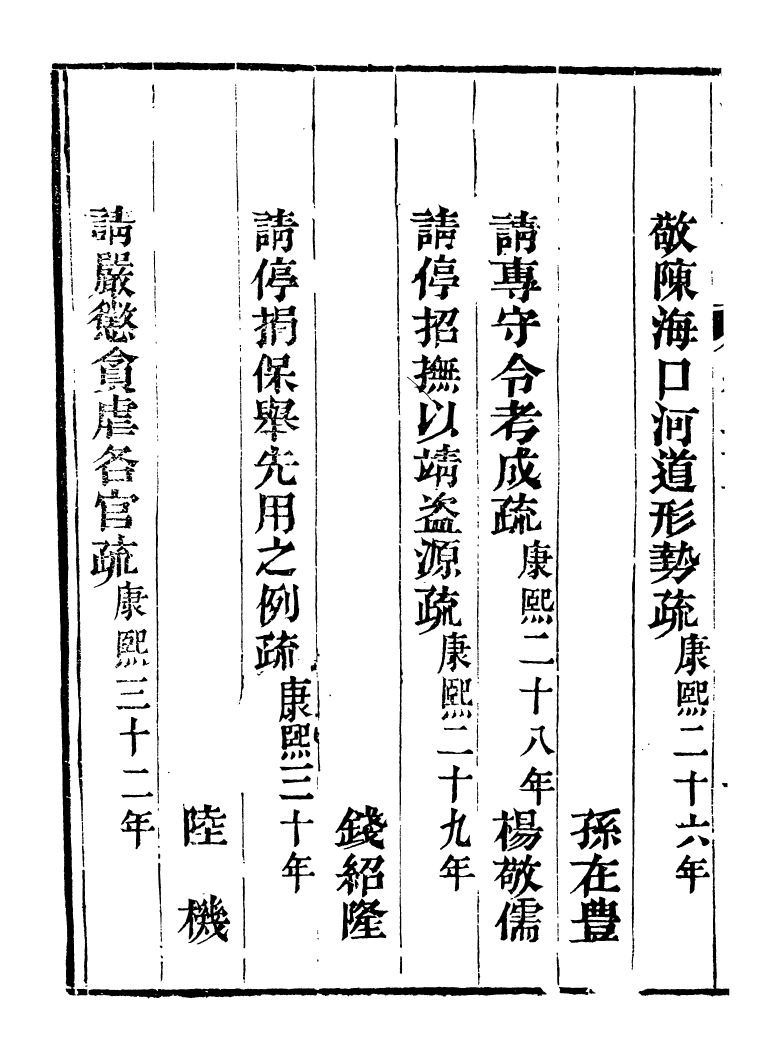 敬陳海口河道形勢疏康熙二十六年
孫在豐
請專守令考成疏康熙二十八年楊敬儒
請停招撫以靖盜源疏康熙二十九年
錢紹隆
請停捐保舉先用之例疏康熙三十年
陸機
請嚴懲貪虐各官疏康熙三十二年